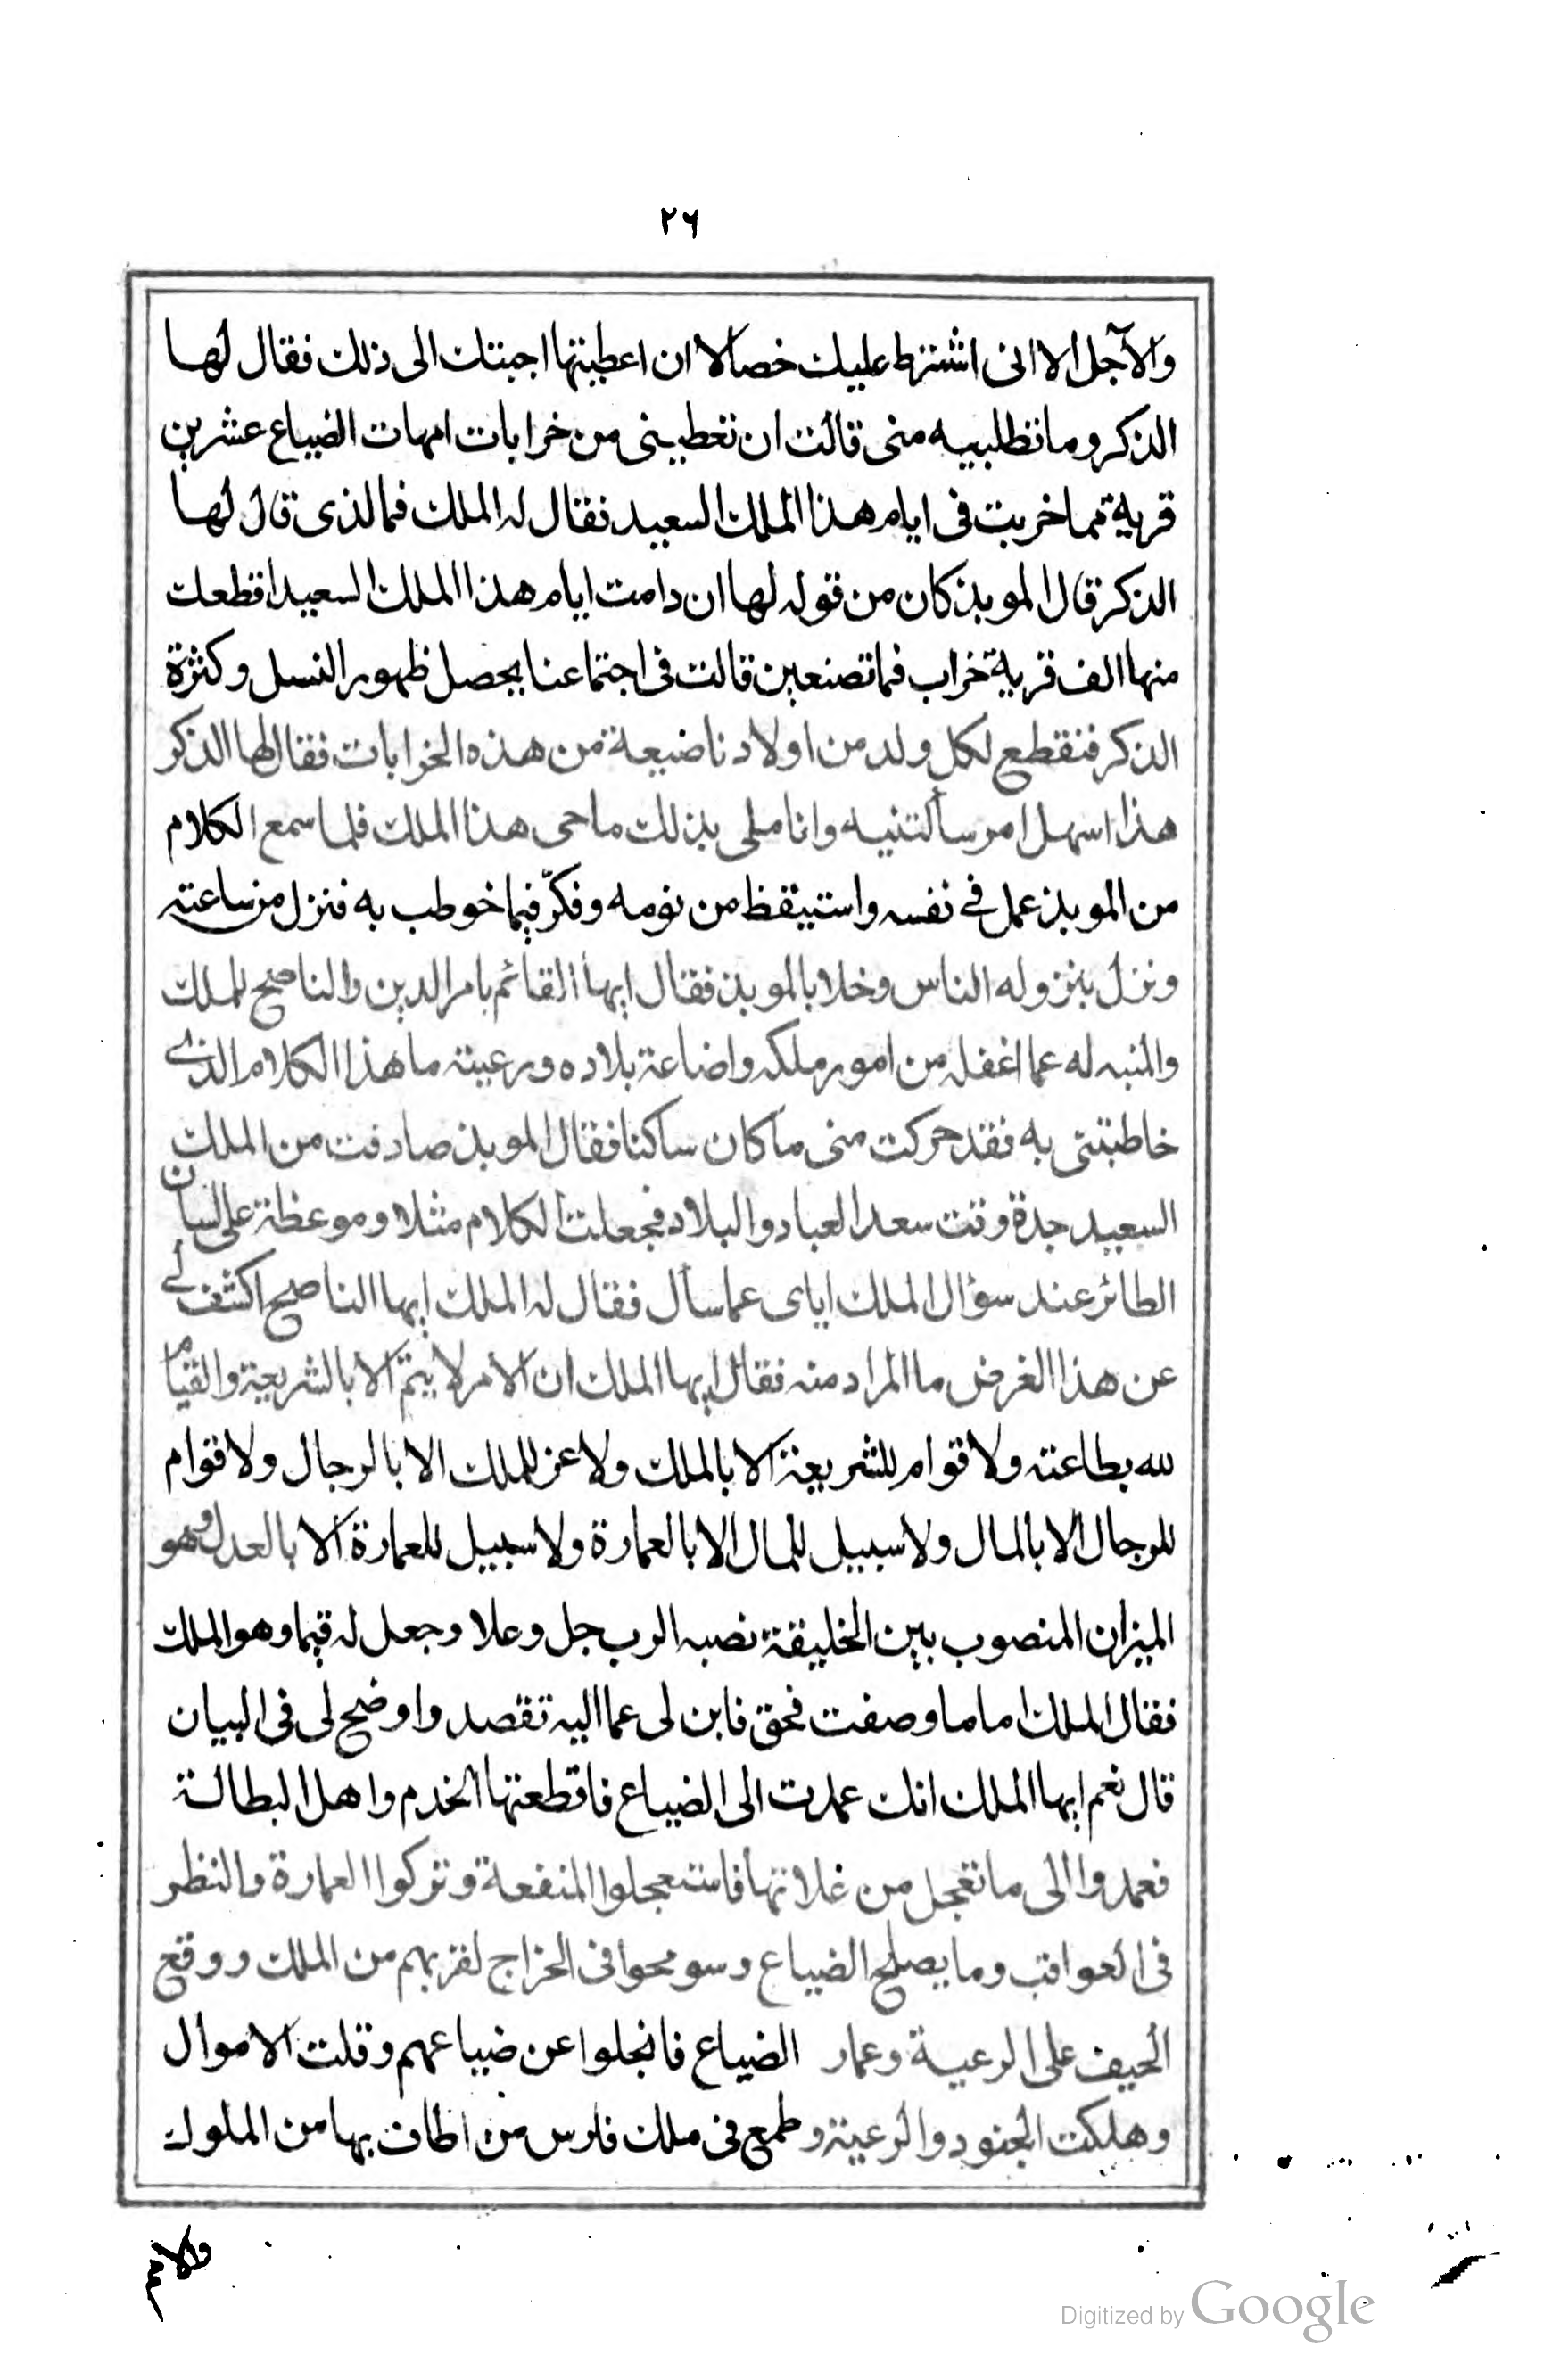 ٢٦
والآجل الا انى اشترط عليك خصالا ان اعطيتها اجبتك الى ذلك فقال لها
الذكر وما تطلبيه منى قالت ان تعطينى من خرابات امهات الضياع عشرين
قرية مما خربت فى ايام هذا الملك السعيد فقال له الملك فما الذى قال لها
الذكر قال الموبذ كان من قوله لها ان دامت ايام هذا الملك السعيد اقطعك
منها الف قرية خراب فما تصنعين قالت فى اجتماعنا يحصل ظهور النسل وكثرة
الذكر فنقطع لكل ولد من اولادنا ضيعة من هذه الخرابات فقال لها الذكر
هذا اسهل امر سألتنيه وانا ملى بذلك ماحى هذا الملك فلما سمع الكلام
من الموبذ عمل فى نفسه واستيقظ من نومه وفكّر فيما خوطب به فنزل من ساعته
ونزل بنزوله الناس وخلا بالموبذ فقال ايها القائم بامر الدين والناصح للملك
والمنبه له عما اغفله من امور ملكه واضاعة بلاده ورعيته ما هذا الكلام الذى
خاطبتنى به فقد حركت منى ما كان ساكنا فقال الموبذ صادفت من الملك
السعيد جدة وقت سعد العباد والبلاد فجعلت الكلام مثلا وموعظة على لسان
الطائر عند سؤال الملك اياى عما سأل فقال له الملك ايها الناصح اكشف لى
عن هذا الغرض ما المراد منه فقال ايها الملك ان الامر لا يتم الا بالشريعة والقيام
لله بطاعته ولا قوام للشريعة الا بالملك ولا عز للملك الا بالرجال ولا قوام
للرجال الا بالمال ولا سبيل للمال الا بالعمارة ولا سبيل للعمارة الا بالعدل وهو
الميزان المنصوب بين الخليقة نصبه الرب جل وعلا وجعل له قيما وهو الملك
فقال الملك اما ما وصفت فحق فابن لى عما اليه تقصد واوضح لى فى البيان
قال نعم ايها الملك انك عمدت الى الضياع فاقطعتها الخدم واهل البطالة
فعمدوا الى ما تعجل من غلاتها فاستعجلوا المنفعة وتركوا العمارة والنظر
فى العواقب وما يصلح الضياع وسومحوا فى الخراج لقربهم من الملك ووقع
الحيف على الرعية وعمار الضياع فانجلوا عن ضياعهم وقلت الاموال
وهلكت الجنود والرعية وطمع فى ملك فارس من اطاف بها من الملوك
والامم
Digitized by Google